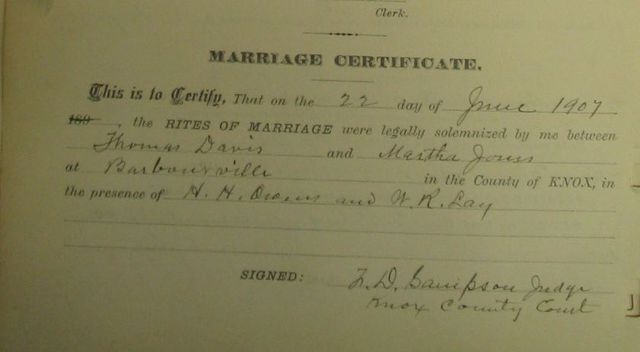 Clerk.
MARRIAGE CERTIFICATE.
This is to Certify, That on the 22 day of June 1907
189 , the RITES OF MARRIAGE were legally solemnized by me between
Thomas Davis and Martha Jones
at Barbourville in the County of KNOX, in
the presence of H. H. Owens and W. R. Lay
SIGNED: F. D. Sampson Judge
Knox County Court